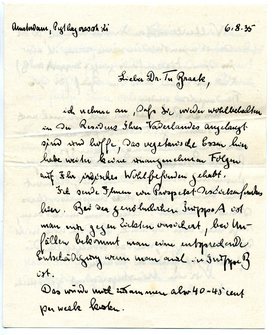 Amsterdam, Pythagorasstr.    6.8.35
Lieber Dr. Ter Braak,
ich nehme an dass Sie wieder wohlbehalten
in der Residenz Ihres Vaterlandes angelangt
sind und hoffe, das vegetarische Essen hier
habe weiter keine unangenehmen Folgen
auf Ihr physisches Wohlbefinden gehabt.
Ich sende Ihnen ein Prospekt
hier. Bei der gewöhnlichen Gruppe A ist
man nur gegen versichert, bei Un-
fällen bekommt man eine entsprechende
Entschädigung wenn man auch in Gruppe B
ist.
Das würde also 40-45 cent
per week kosten.